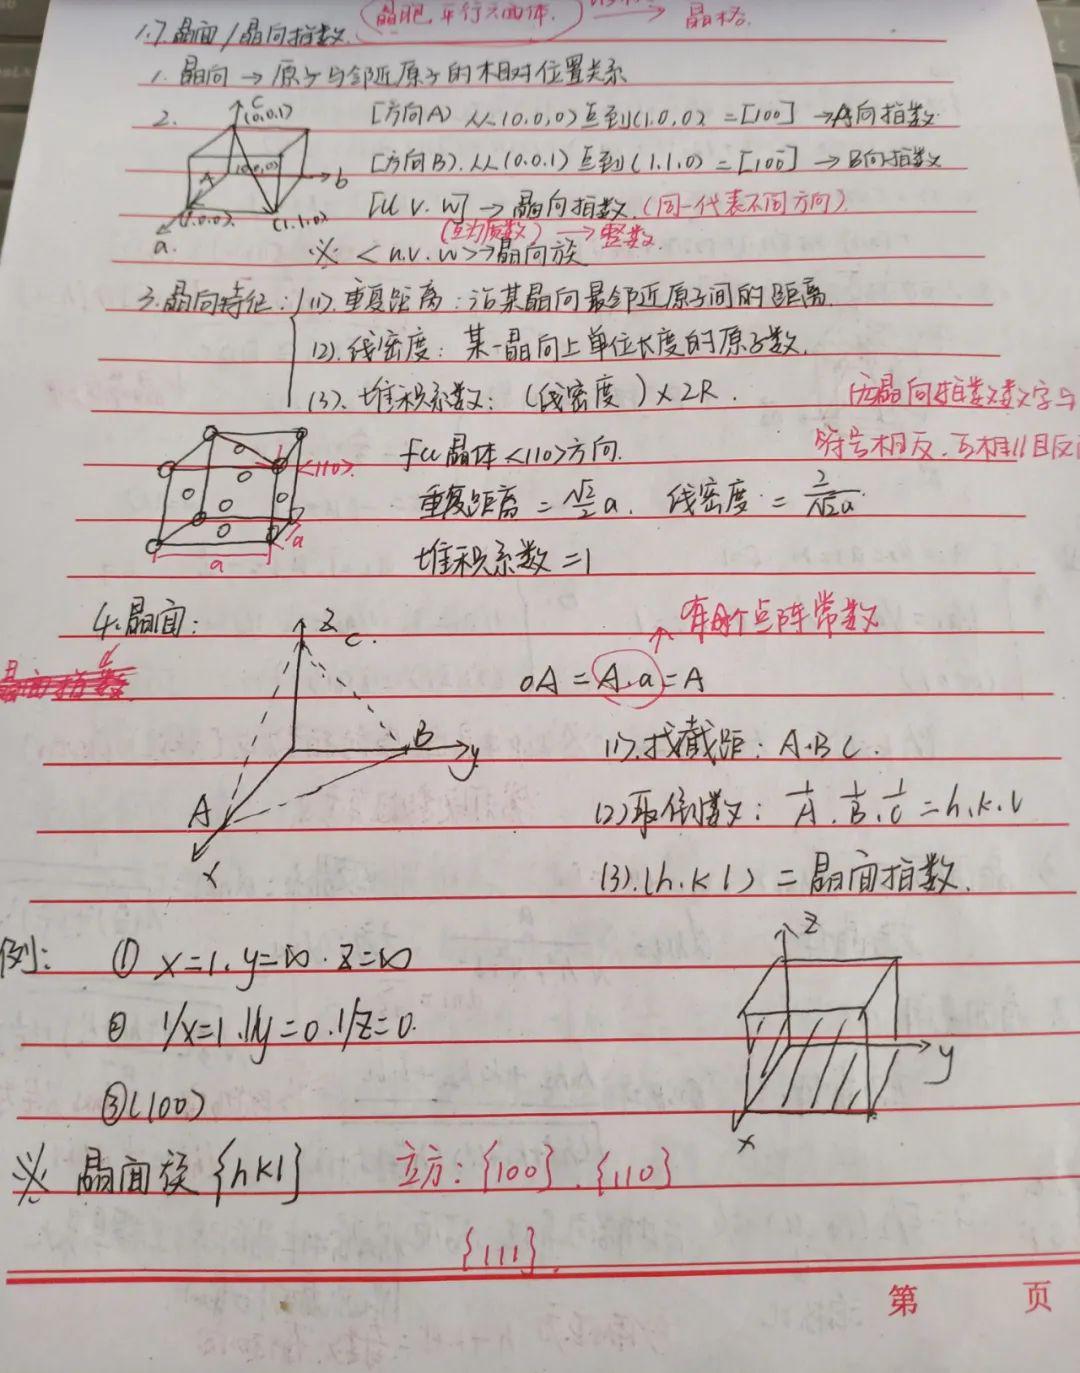 晶胞,平行六面体. → 晶格.
1.7.晶面/晶向指数.
1.晶向→原子与邻近原子的相对位置关系
2.
C
(0,0,1)
(0,0,0)
A
b
(1.0.0).
(1.1.0)
a.
[方向A) 从(0,0,0)点到(1.0.0) =[100] →A向指数.
[方向B).从(0.0.1)点到(1.1.0)=[100] →B向指数
[U V. W]→晶向指数.(同一代表不同方向).
(互为质数)→整数.
※ <u.v.w>→晶向族
3.晶向特征:(1).重复距离:沿某晶向最邻近原子间的距离.
(2).线密度:某一晶向上单位长度的原子数.
(3).堆积系数:(线密度)×2R.
晶向指数数字与
符号相反.互相//且反
<110>.
a
a
fcc晶体<110>方向.
重复距离=√2/2 a. 线密度=2/√2a
堆积系数=1
4.晶面:
晶面指数
z
C.
B
y
A
x
有时个点阵常数
OA=A.a=A
(1).找截距:A.B C.
(2)取倒数:1/A.1/B.1/C=h.k.l
(3).(h.k l)=晶面指数.
例:①x=1.y=∞.z=∞
②1/x=1.1/y=0.1/z=0.
③(100)
z
y
x
※ 晶面族{hkl} 立方:{100}.{110}
{111}.
第 页